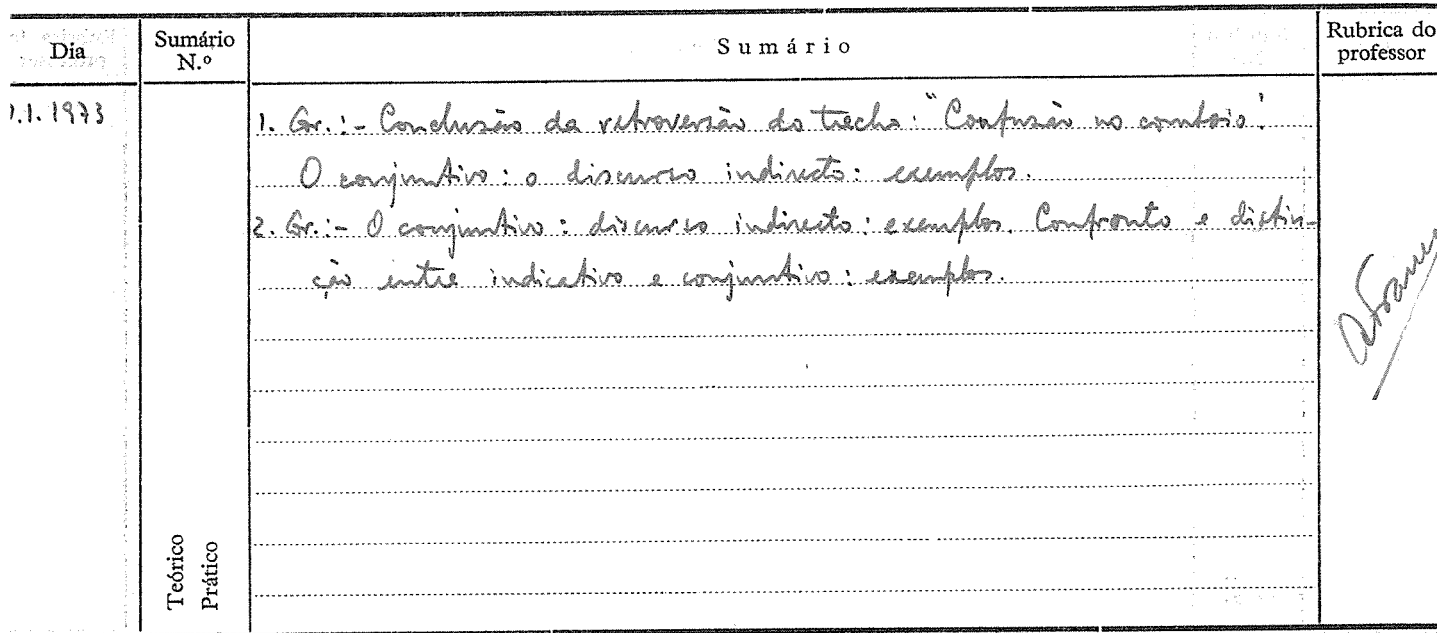 Dia
Sumário N.º
Sumário
Rubrica do professor
.1.1973
1. Gr.:- Conclusão da retroversão do trecho: "Confusão no comboio".
O conjuntivo: o discurso indirecto: exemplos.
2. Gr.:- O conjuntivo: discurso indirecto: exemplos. Confronto e distin-
ção entre indicativo e conjuntivo: exemplos.
Teórico
Prático